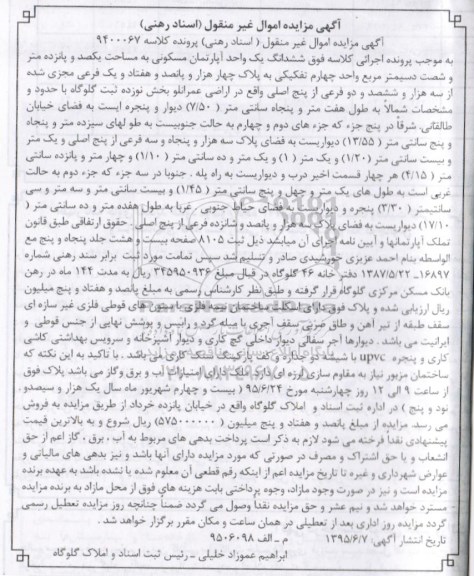 آگهی مزایده اموال غیر منقول (اسناد رهنی)
آگهی مزایده اموال غیر منقول ( اسناد رهنی) پرونده کلاسه ۹۴۰۰۰۶۷
به موجب پرونده اجرائی کلاسه فوق ششدانگ یک واحد آپارتمان مسکونی به مساحت یکصد و پانزده متر
و شصت دسیمتر مربع واحد چهارم تفکیکی به پلاک چهار هزار و پانصد و هفتاد و یک فرعی مجزی شده
از سه هزار و ششصد و دو فرعی از پنج اصلی واقع در اراضی عمرانلو بخش نوزده ثبت گلوگاه با حدود و
مشخصات شمالاً به طول هفت متر و پنجاه سانتی متر (۷/۵۰) دیوار و پنجره ایست به فضای خیابان
طالقانی. شرقاً در پنج جزء که جزء های دوم و چهارم به حالت جنوبیست به طولهای سیزده متر و پنجاه
و پنج سانتی متر (۱۳/۵۵) دیواریست به فضای پلاک سه هزار و پنجاه و سه فرعی از پنج اصلی و یک متر
و بیست سانتی متر (۱/۲۰) و یک متر ( ۱) و یک متر و ده سانتی متر ( ۱/۱۰) و چهار متر و پانزده سانتی
متر (۴/۱۵) هر چهار قسمت اخیر درب و دیواریست به راه پله . جنوبا در سه جزء که جزء دوم به حالت
غربی است به طول های یک متر و چهل و پنج سانتی متر ( ۱/۴۵) و بیست سانتی متر و سه متر و سی
سانتیمتر ( ۳/۳۰) پنجره و دیواریست به فضای حیاط جنوبی . غربا به طول هفده متر و ده سانتی متر (
۱۷/۱۰) دیواریست به فضای پلاک سه هزار و پانصد و شانزده فرعی از پنج اصلی . حقوق ارتفاقی طبق قانون
تملک آپارتمانها و آیین نامه اجرای آن میباشد ذیل ثبت ۸۱۰۵ صفحه بیست و هشت جلد پنجاه و پنج مع
الواسطه بنام احمد عزیزی خورشیدی صادر و تسلیم شد سپس تمامت مورد ثبت برابر سند رهنی شماره
۱۶۸۹۷- ۱۳۸۷/۵/۲۲ دفتر خانه ۴۶ گلوگاه در قبال مبلغ ۳۴۵۹۵۰۹۳۶ ریال به مدت ۱۴۴ ماه در رهن
بانک مسکن مرکزی گلوگاه قرار گرفته و طبق نظر کارشناس رسمی به مبلغ پانصد و هفتاد و پنج میلیون
ریال ارزیابی شده و پلاک فوق دارای اسکلت ساختمان نیمه فلزی با ستون های قوطی فلزی غیر سازه ای
سقف طبقه از تیر آهن و طاق ضربی سقف آجری با میله گرد و رابیس و پوشش نهایی از جنس قوطی و
ایرانیت می باشد . دیوارها آجر سفالی دیوار داخلی گچ کاری و دیوار آشپزخانه و سرویس بهداشتی کاشی
کاری و پنجره upvc با شیشه دو جداره و کف پارکینگ سنگ کاری می باشد . با تاکید به این نکته که
ساختمان مزبور نیاز به مقاوم سازی لرزه ای دارد ملک دارای امتیازات آب و برق وگاز می باشد پلاک فوق
از ساعت ۹ الی ۱۲ روز چهارشنبه مورخ ۹۵/۶/۲۴ ( بیست و چهارم شهریور ماه سال یک هزار و سیصدو
نود و پنج ) در اداره ثبت اسناد و املاک گلوگاه واقع در خیابان پانزده خرداد از طریق مزایده به فروش
می رسد. مزایده از مبلغ پانصد و هفتاد و پنج میلیون ( ۵۷۵۰۰۰۰۰۰) ریال شروع و به بالاترین قیمت
پیشنهادی نقداً فرخته می شود لازم به ذکر است پرداخت بدهی های مربوط به آب ، برق ، گاز اعم از حق
انشعاب و یا حق اشتراک و مصرف در صورتی که مورد مزایده دارای آنها باشد و نیز بدهی های مالیاتی و
عوارض شهرداری و غیره تا تاریخ مزایده اعم از اینکه رقم قطعی آن معلوم شده یا نشده باشد به عهده برنده
مزایده است و نیز در صورت وجود مازاد، وجوه پرداختی بابت هزینه های فوق از محل مازاد به برنده مزایده
مسترد خواهد شد و نیم عشر و حق مزایده نقداً وصول می گردد ضمناً چنانچه روز مزایده تعطیل رسمی
گردد مزایده روز اداری بعد از تعطیلی در همان ساعت و مکان مقرر برگزار خواهد شد .
تاریخ انتشار آگهی: ۱۳۹۵/۶/۷ م - الف ۹۵۰۶۰۹۸
ابراهیم عموزاد خلیلی - رئیس ثبت اسناد و املاک گلوگاه